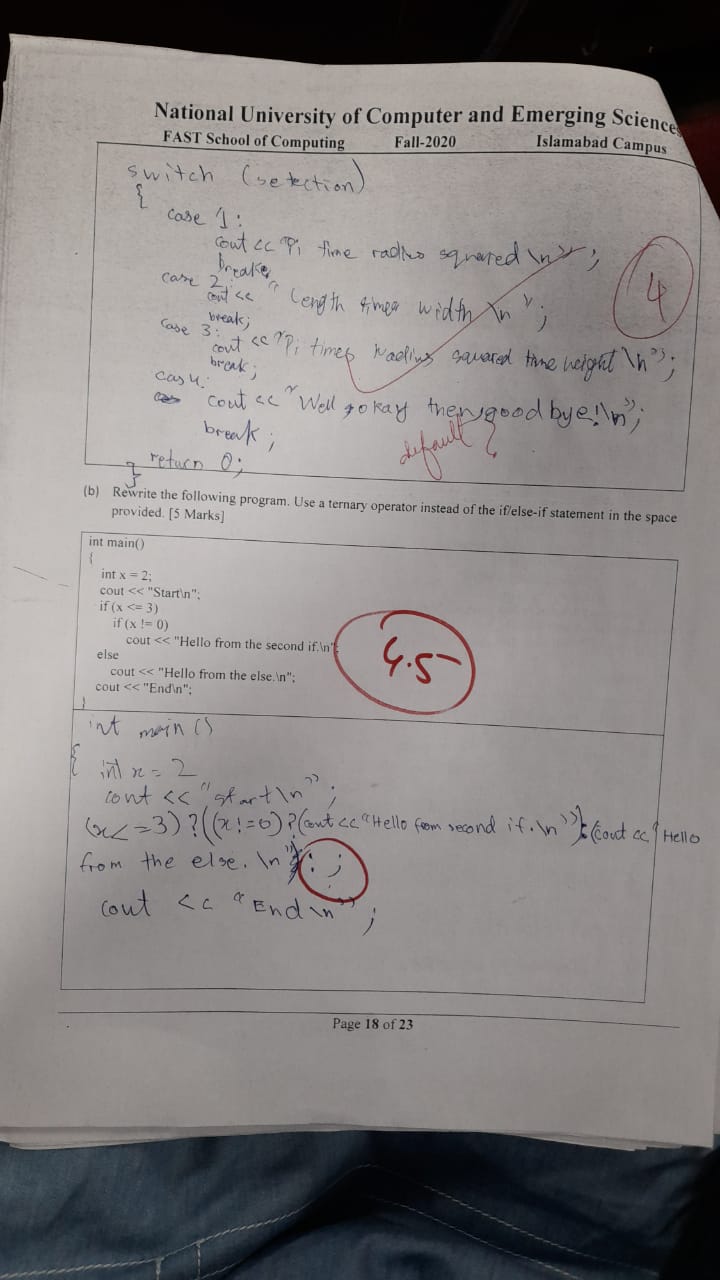 National University of Computer and Emerging Sciences
FAST School of Computing Fall-2020 Islamabad Campus
switch (selection)
{
case 1:
cout << "Pi time radius squared \n";
break;
case 2:
cout << "Length times width \n";
break;
case 3:
cout << "Pi times radius squared time height \n";
break;
cas 4:
cout << "Well okay then good bye!\n";
break;
default ?
} return 0;
4
(b) Rewrite the following program. Use a ternary operator instead of the if/else-if statement in the space
provided. [5 Marks]
int main()
{
int x = 2;
cout << "Start\n";
if (x <= 3)
if (x != 0)
cout << "Hello from the second if.\n";
else
cout << "Hello from the else.\n";
cout << "End\n";
}
4.5
int main ()
{ int x = 2
cout << "start\n";
(x<=3)?((x!=0)?(cout<<"Hello from second if.\n"):(cout << "Hello
from the else. \n" : ;
cout << "End\n";
Page 18 of 23